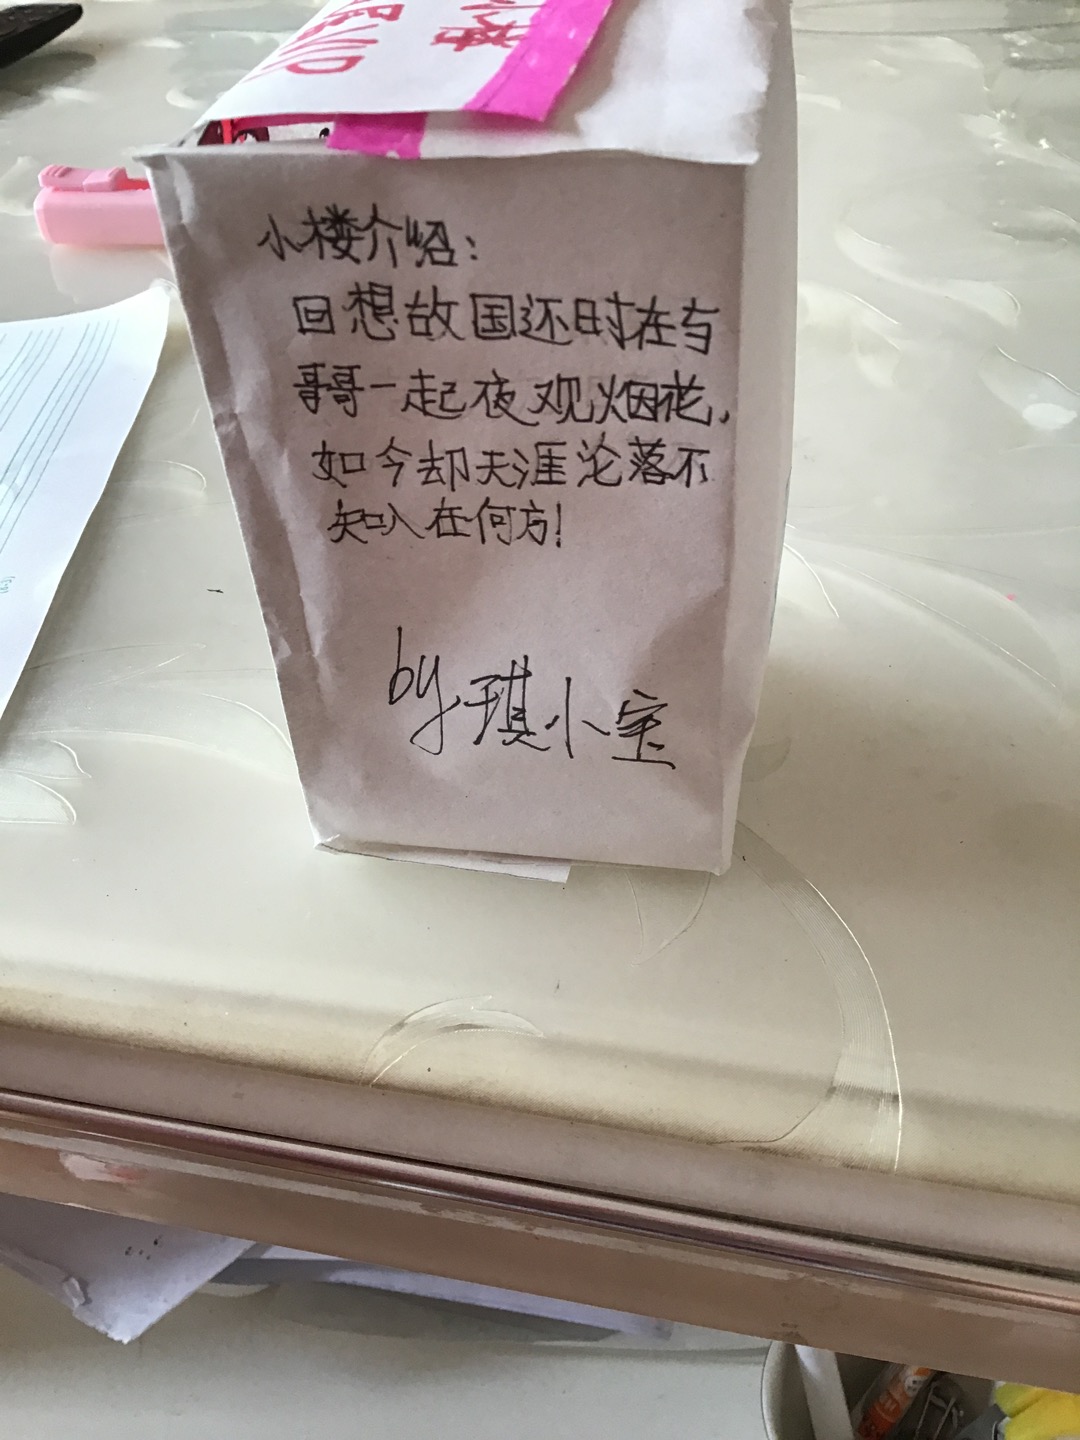 小楼介绍：
回想故国还时在与
哥哥一起夜观烟花，
如今却天涯沦落不
知人在何方！
by 琪小宝